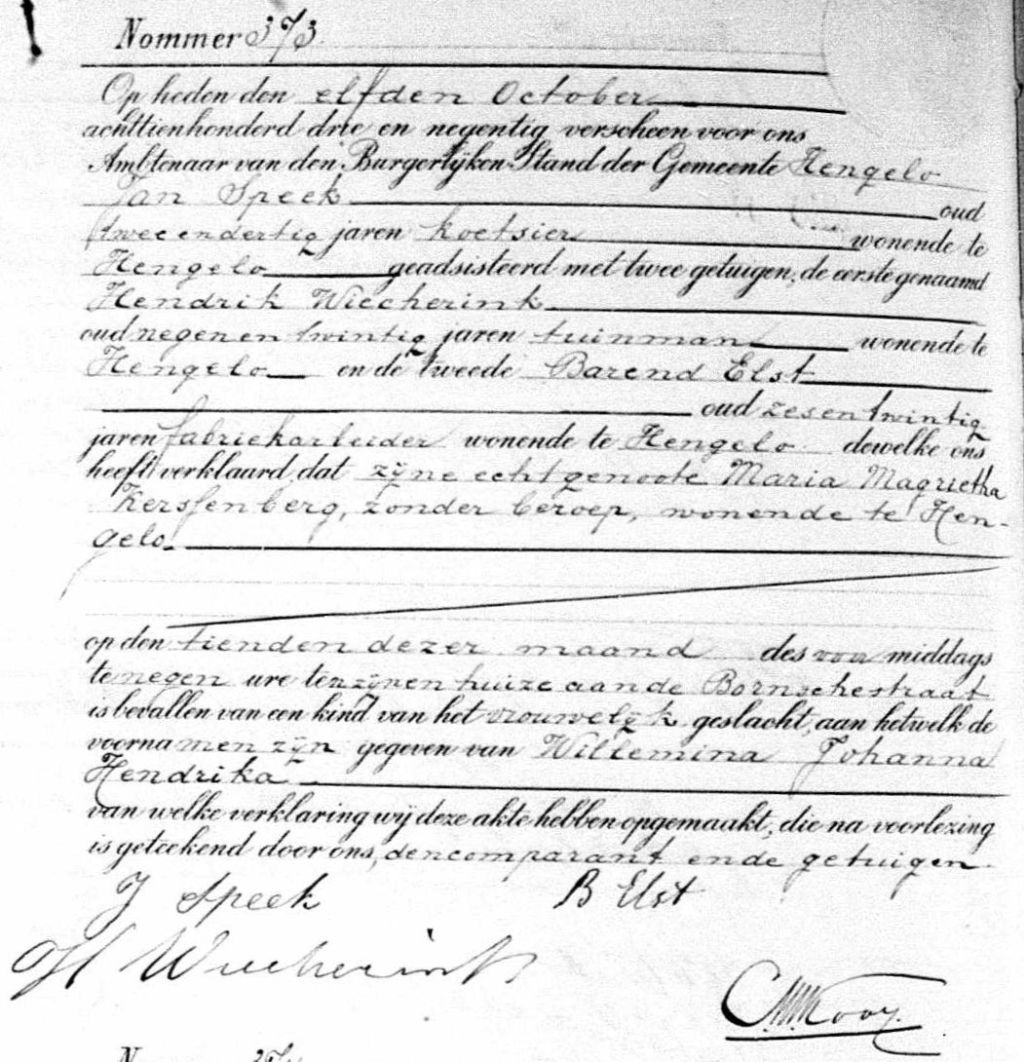 Nommer 373.
Op heden den elfden October
achttienhonderd drie en negentig verscheen voor ons
Ambtenaar van den Burgerlijken Stand der Gemeente Hengelo
Jan Speek oud
twee endertig jaren koetsier wonende te
Hengelo geadsisteerd met twee getuigen, de eerste genaamd
Hendrik Wiecherink
oud negenentwintig jaren tuinman wonende te
Hengelo en de tweede Barend Elst
oud zesentwintig
jaren fabriekarbeider wonende te Hengelo dewelke ons
heeft verklaard dat zijne echtgenoote Maria Magrietha
Kersfenberg, zonder beroep, wonende te Hen-
gelo.
op den tienden dezer maand des voor middags
te negen ure ten zijnen huize aan de Bornschestraat
is bevallen van een kind van het vrouwelijk geslacht, aan hetwelk de
voornamen zijn gegeven van Willemina Johanna
Hendrika
van welke verklaring wij deze akte hebben opgemaakt, die na voorlezing
is geteekend door ons, den comparant en de getuigen.
J Speek B Elst
H Wiecherink